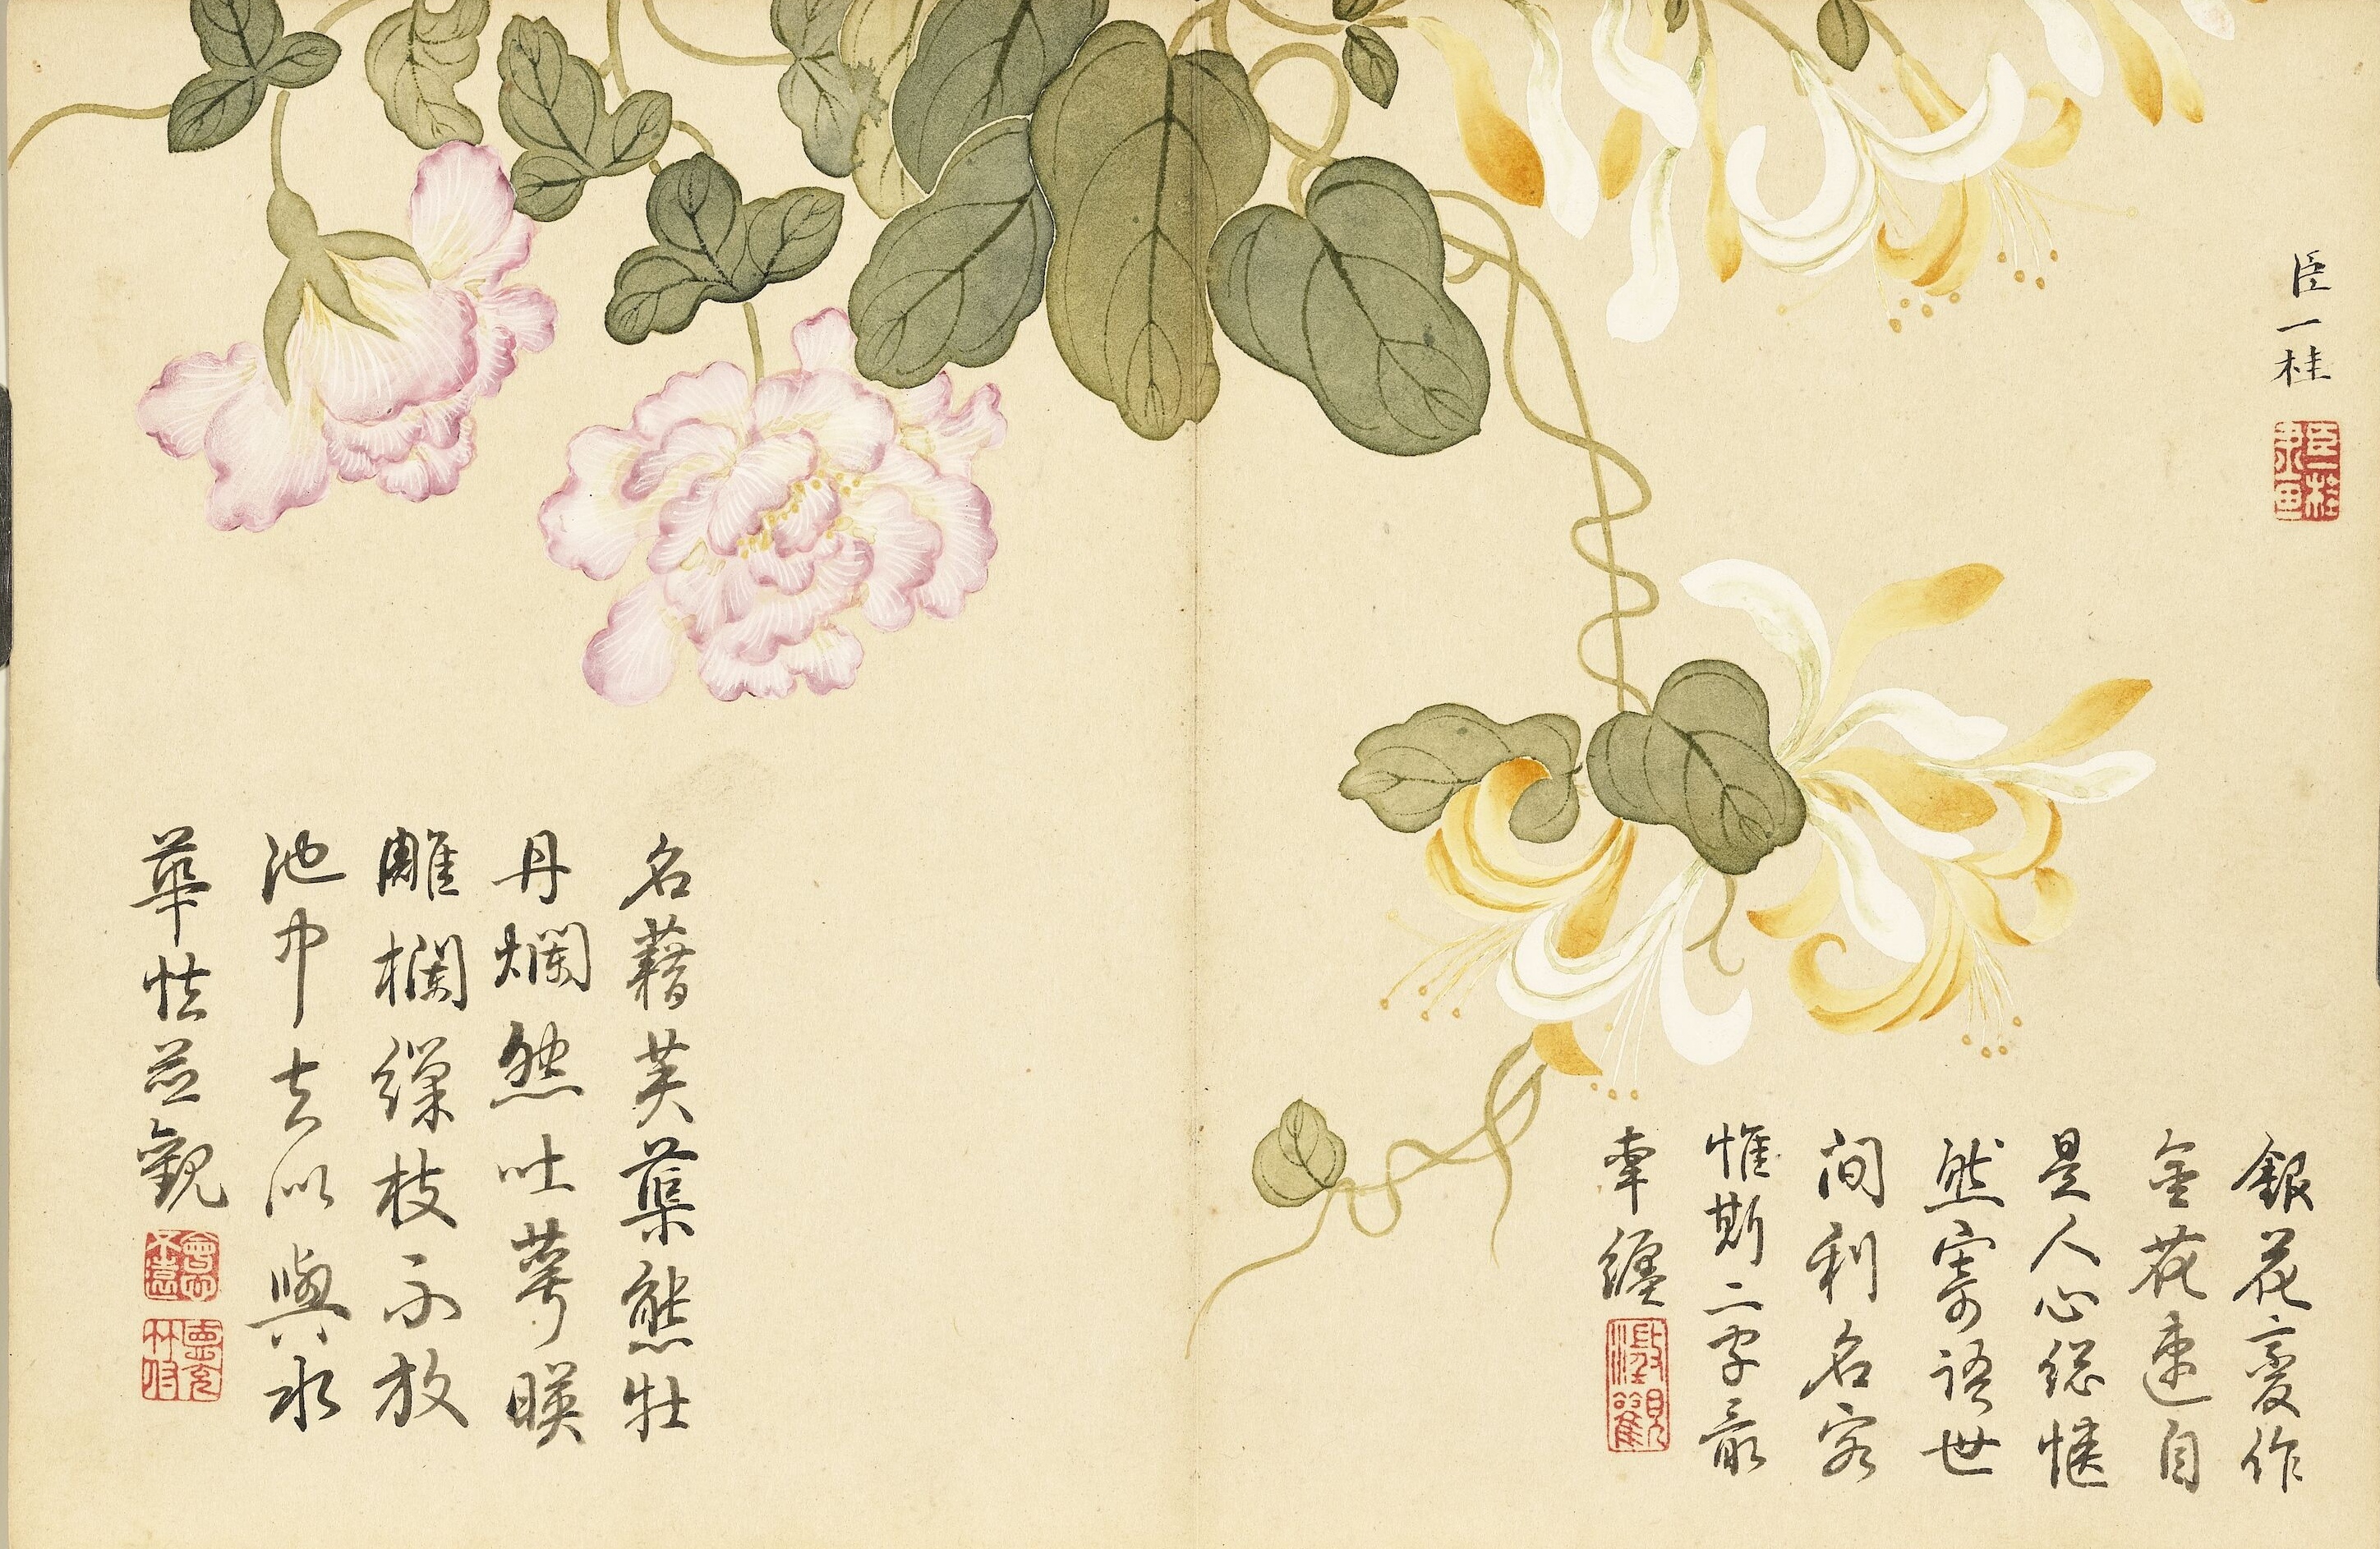 臣一桂
銀花變作
金花速自
是人心總愜
然寄語世
間利名客
惟斯二字最
牽纏
澂觀
名藉芙蕖態牡
丹爛然吐萼暎
雕欄枝不放
池中去似與水
華怯並觀
會心不遠
德充符